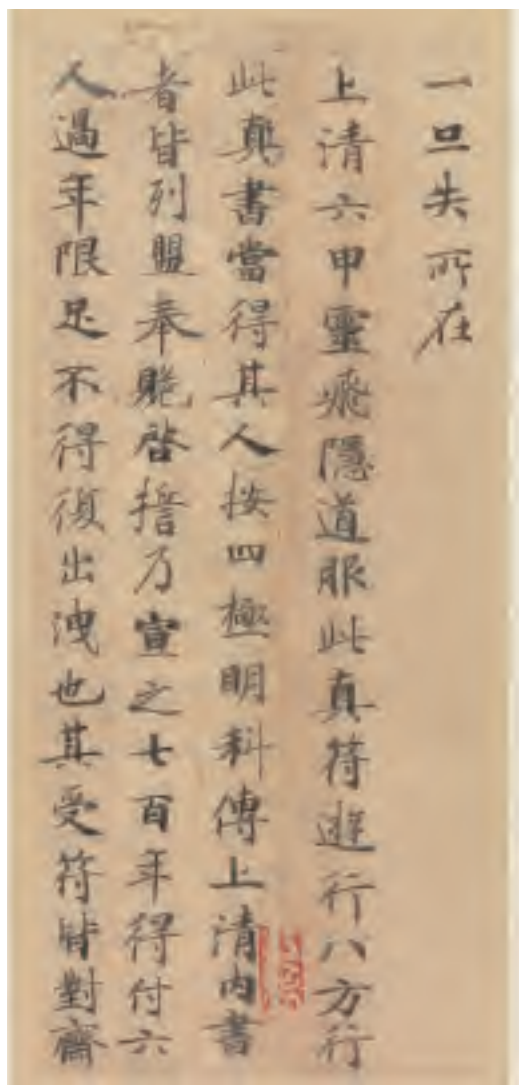 一旦失所在
上清六甲靈飛隱道服此真符遊行八方行
此真書當得其人按四極明科傳上清內書
者皆列盟奉貺啓擔乃宣之七百年得付六
人過年限足不得復出洩也其受符皆對齋